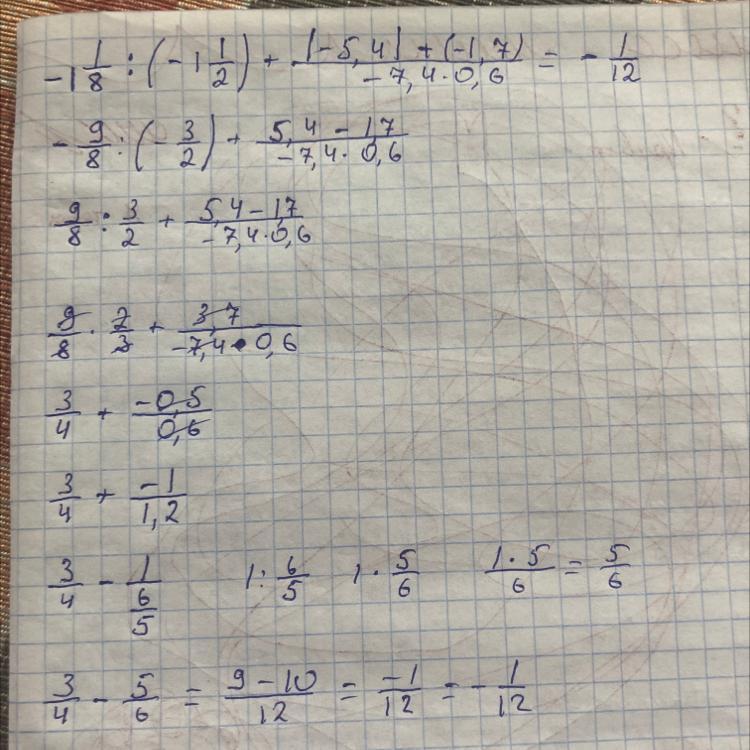 -1 1/8 : (-1 1/2) + (|-5,4| + (-1,7))/(-7,4·0,6) = -1/12
-9/8 : (-3/2) + (5,4 - 1,7)/(-7,4·0,6)
9/8 : 3/2 + (5,4 - 1,7)/(-7,4·0,6)
9/8 · 2/3 + 3,7/(-7,4·0,6)
3/4 + (-0,5)/0,6
3/4 + (-1)/1,2
3/4 - 1/(6/5) 1 : 6/5 1 · 5/6 (1·5)/6 = 5/6
3/4 - 5/6 = (9-10)/12 = (-1)/12 = -1/12